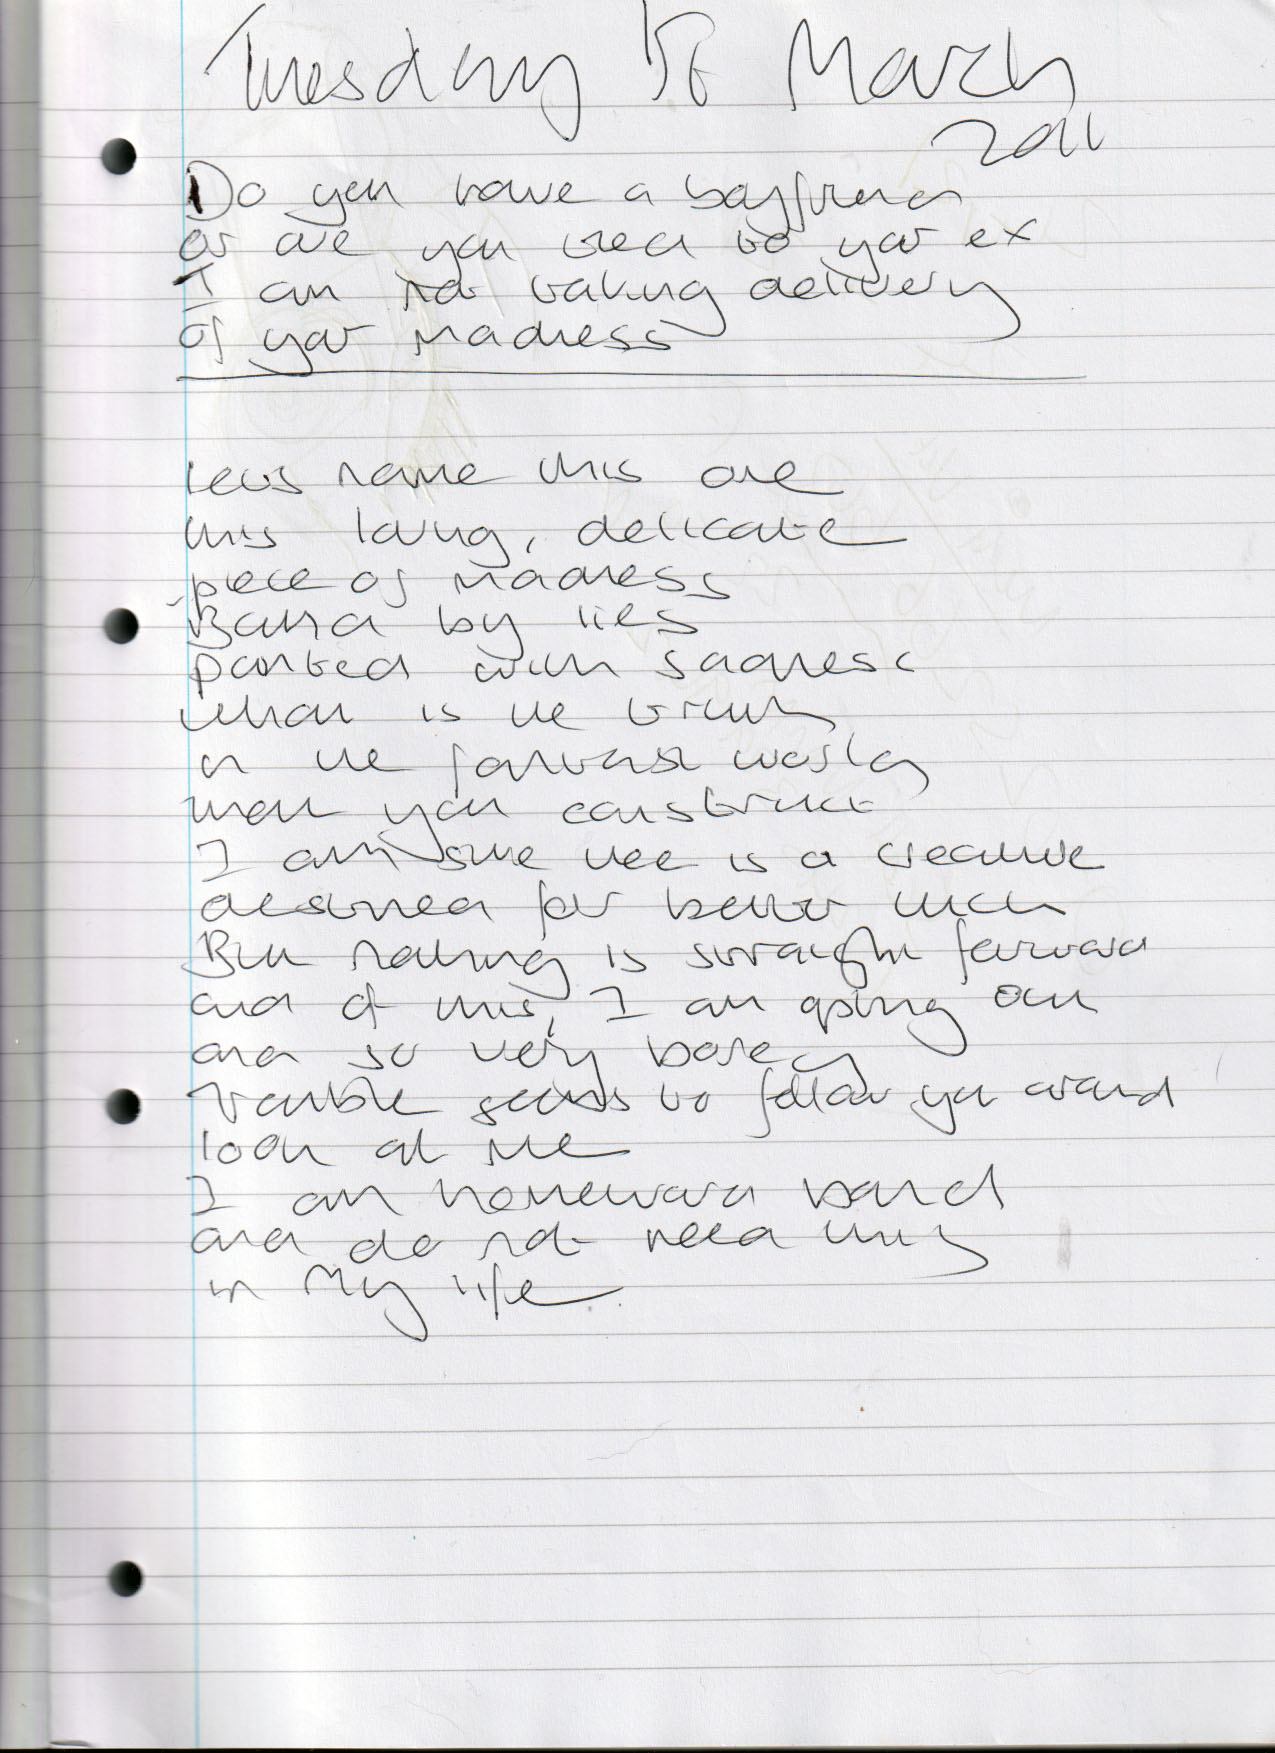 Tuesday 1st March
2011
Do you have a boyfriend
or are you tied to your ex
I am not taking delivery
of your madness
lets name this one
this loving, delicate
piece of madness
Bound by lies
painted with sadness
what is the truth
in the fantasy world
that you construct
I am sure there is a creature
destined for better luck
But nothing is straight forward
and of this, I am opting out
and so very bored
trouble seems to follow you around
look at me
I am homeward bound
and do not need this
in my life